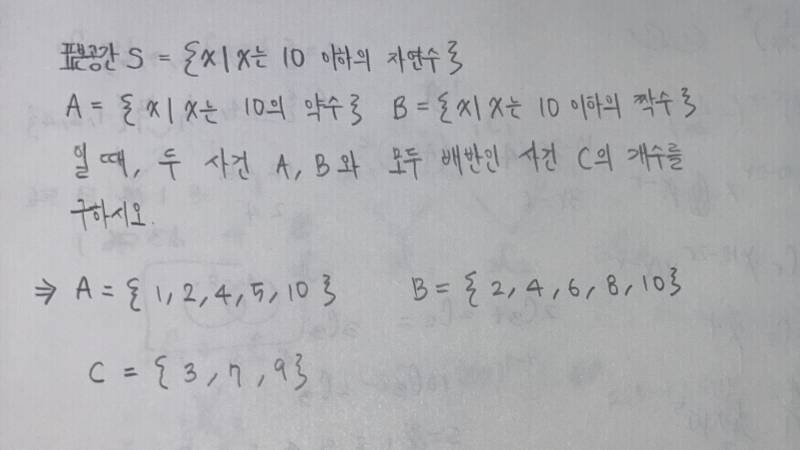 표본공간 S = {x|x는 10 이하의 자연수}
A = {x|x는 10의 약수} B = {x|x는 10 이하의 짝수}
일 때, 두 사건 A, B와 모두 배반인 사건 C의 개수를
구하시오.
⇒ A = {1, 2, 4, 5, 10} B = {2, 4, 6, 8, 10}
C = {3, 7, 9}